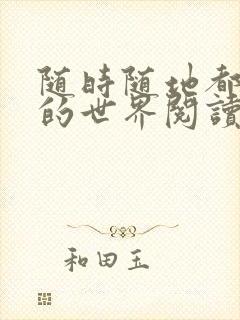 随時随地都
的世界閱讀
和田玉